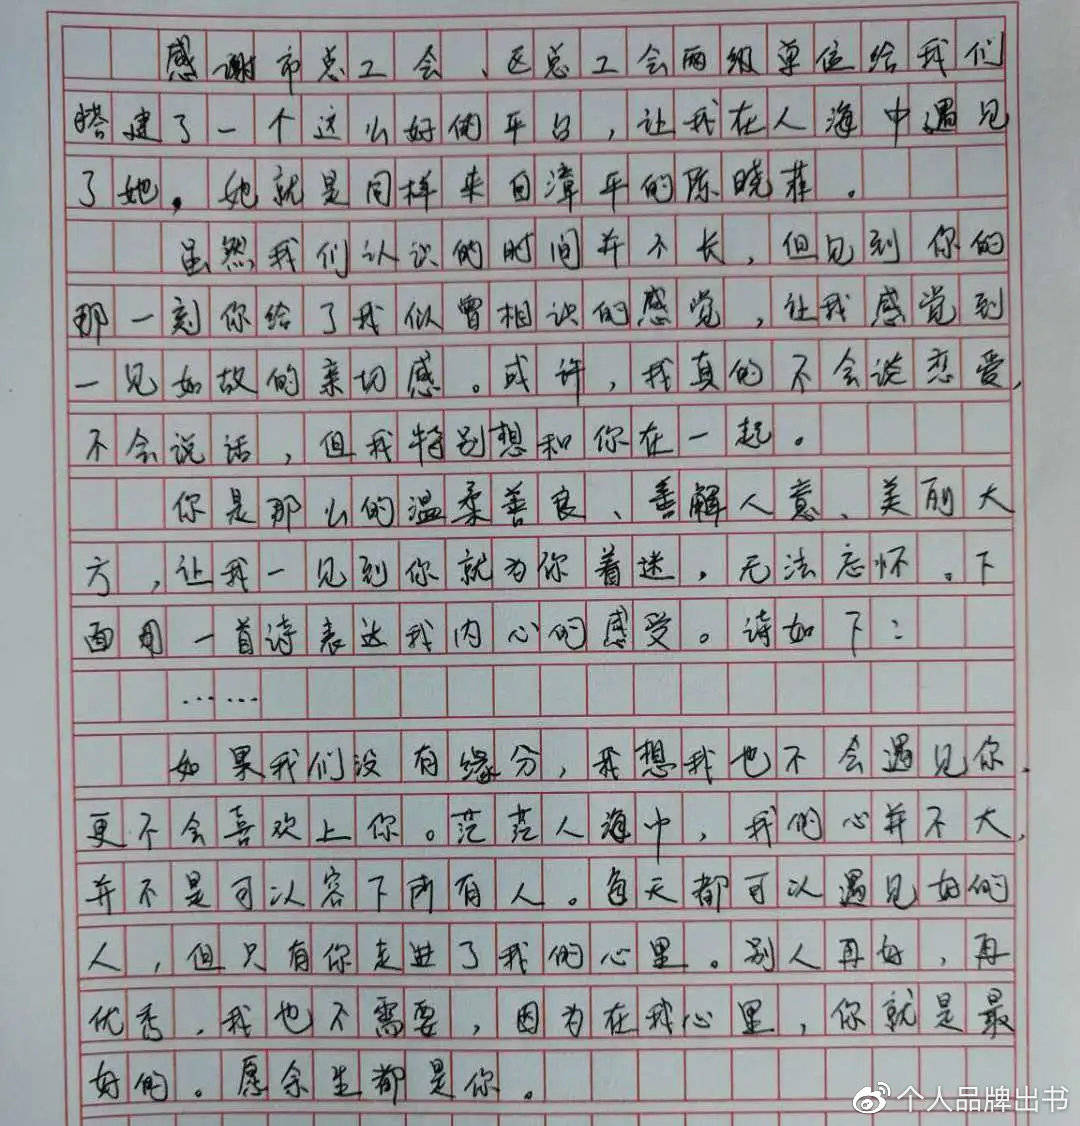 感谢市总工会、区总工会两级单位给我们
搭建了一个这么好的平台，让我在人海中遇见
了她。她就是同样来自漳平的陈晓菲。
虽然我们认识的时间并不长，但见到你的
那一刻你给了我似曾相识的感觉，让我感觉到
一见如故的亲切感。或许，我真的不会谈恋爱，
不会说话，但我特别想和你在一起。
你是那么的温柔善良、善解人意、美丽大
方，让我一见到你就为你着迷，无法忘怀。下
面用一首诗表达我内心的感受。诗如下：
……
如果我们没有缘分，我想我也不会遇见你，
更不会喜欢上你。茫茫人海中，我的心并不大，
并不是可以容下所有人。每天都可以遇见好的
人，但只有你走进了我的心里。别人再好，再
优秀，我也不需要，因为在我心里，你就是最
好的。愿余生都是你。
个人品牌出书